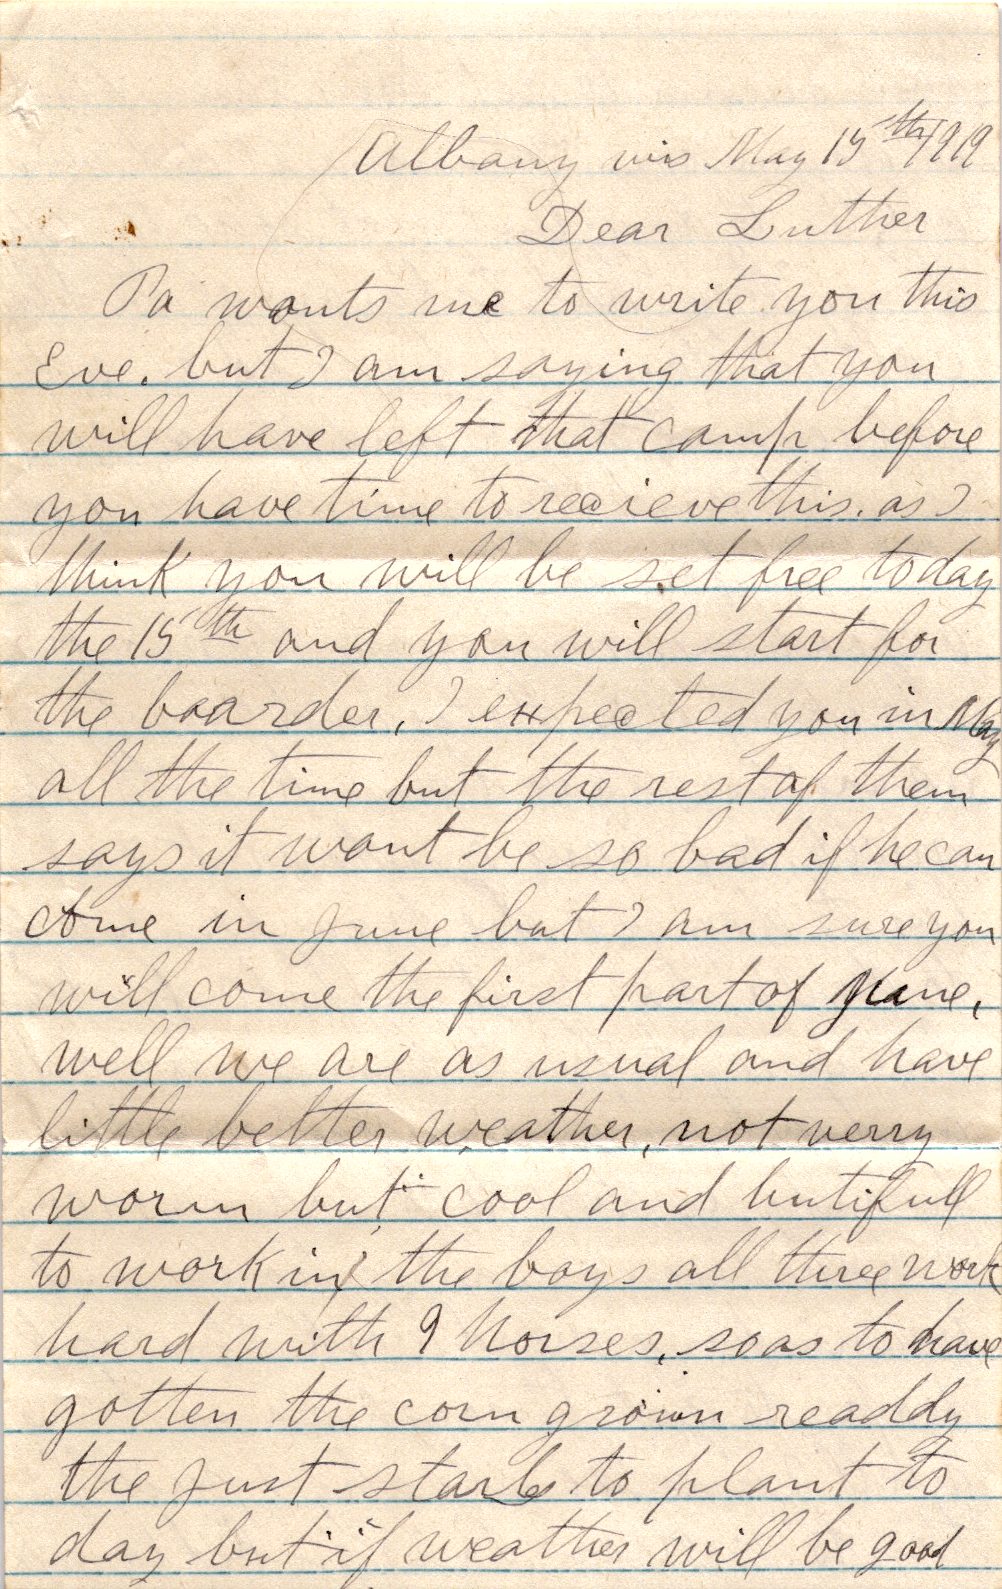 Albany wis May 15th 1919
Dear Luther
Pa wants me to write you this
Eve. but I am saying that you
will have left that camp before
you have time to recieve this. as I
think you will be set free today
the 15th and you will start for
the boarder, I expected you in May
all the time but the rest of them
says it wont be so bad if he can
come in June but I am sure you
will come the first part of June,
well we are as usual and have
little better weather, not verry
worm but cool and butifull
to work in, the boys all three work
hard with 9 horses, so as to have
gotten the corn grown readdy
the just starts to plant to
day but if weather will be good